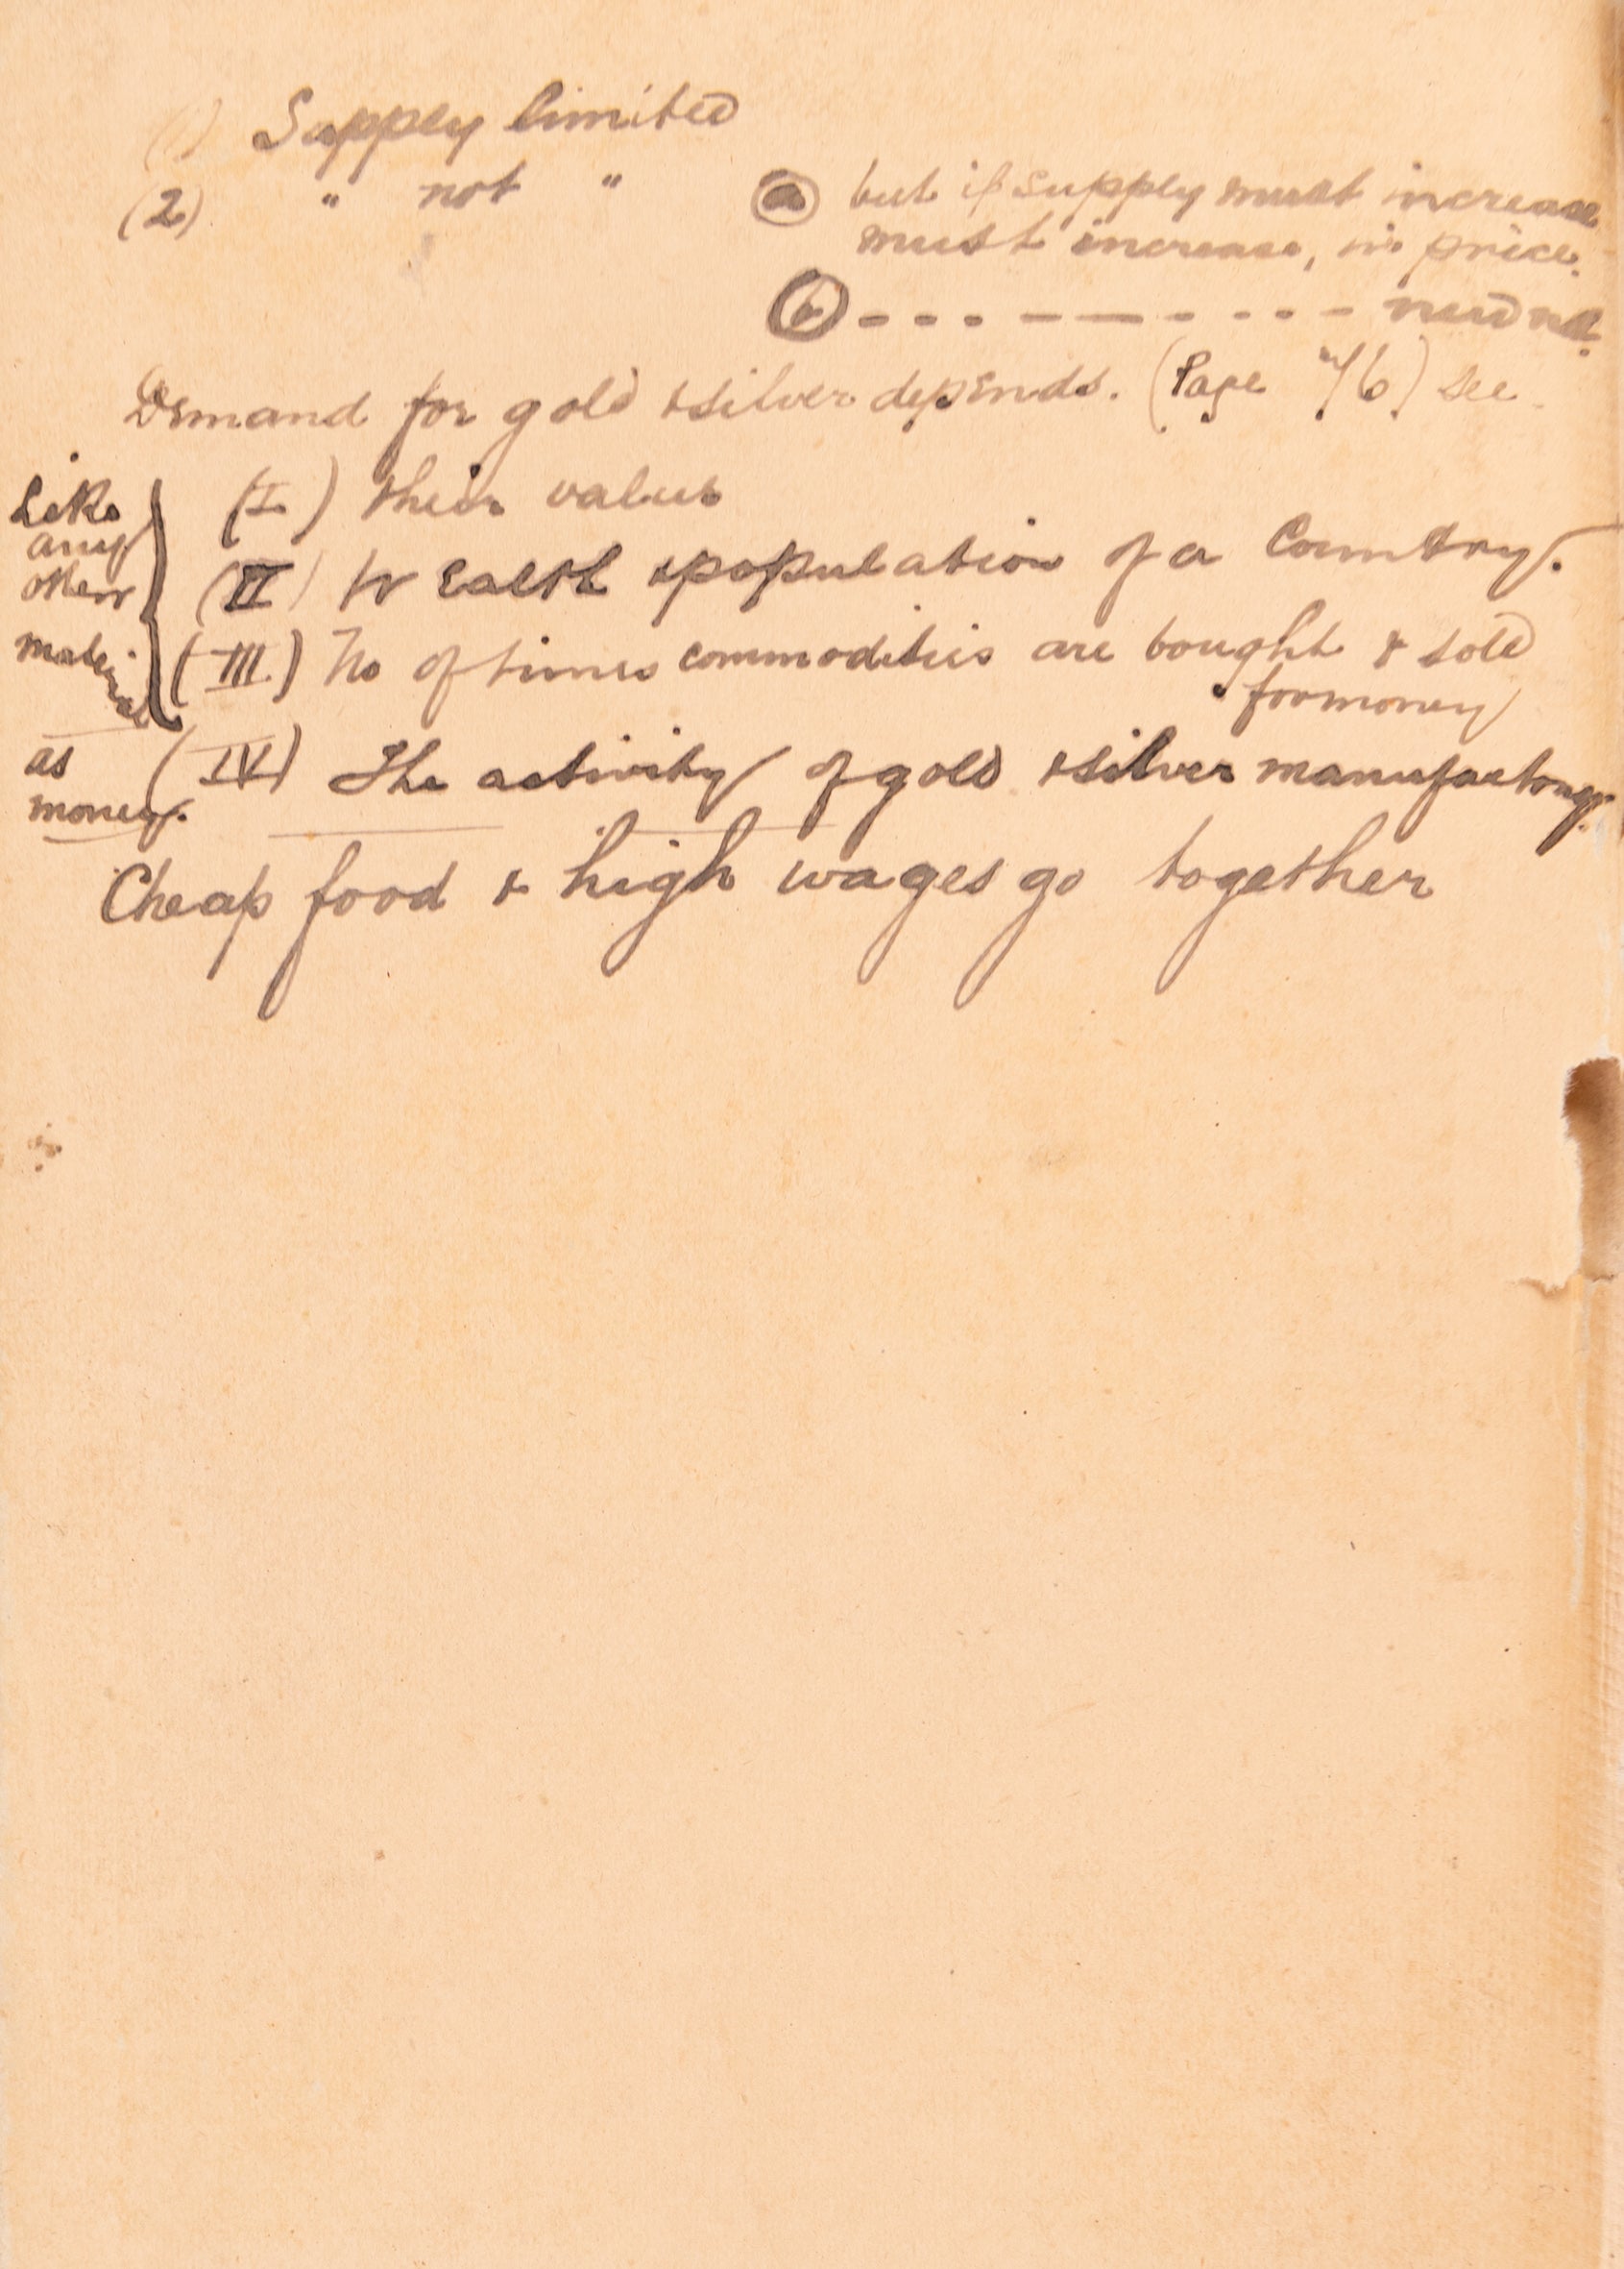 (1) Supply limited
(2) " not " (a) but if supply must increase
must increase, in price.
(b) - - - - - - - - - need not.
Demand for gold & silver depends. (Page 76) see
Like any other material
(I) their value
(II) Wealth & population of a Country.
(III) No of times commodities are bought & sold
for money
as money.
(IV) The activity of gold & silver manufactory.
Cheap food & high wages go together